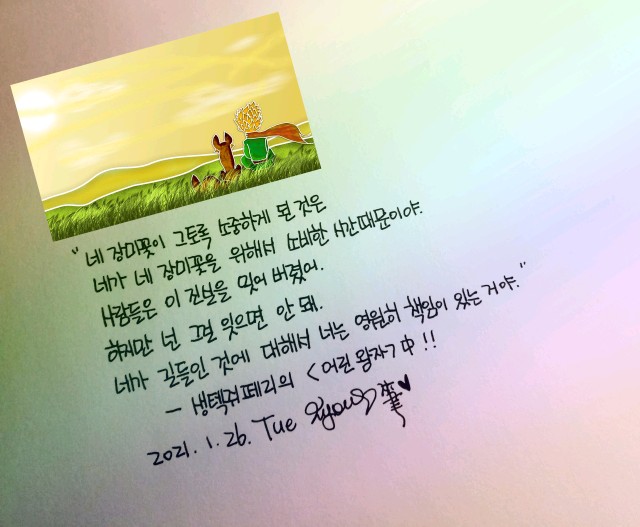 "네 장미꽃이 그토록 소중하게 된 것은
네가 네 장미꽃을 위해서 소비한 시간때문이야.
사람들은 이 진실을 잊어 버렸어.
하지만 넌 그걸 잊으면 안 돼.
네가 길들인 것에 대해서 너는 영원히 책임이 있는 거야."
- 생텍쥐페리의 <어린 왕자> 中!!
2021. 1. 26. Tue